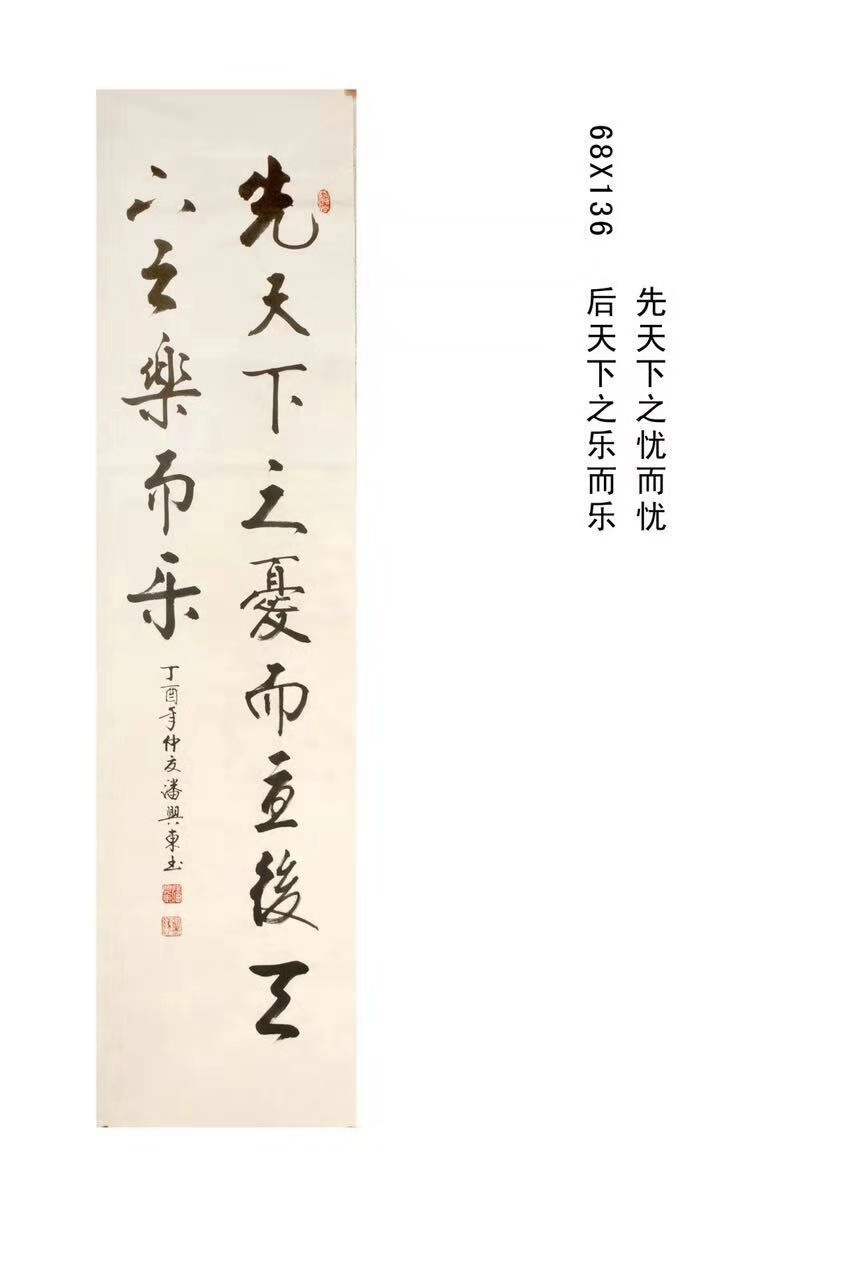 先天下之忧而忧
68X136 后天下之乐而乐
先天下之憂而憂後天
下之樂而乐
丁酉年仲夏潘興東书